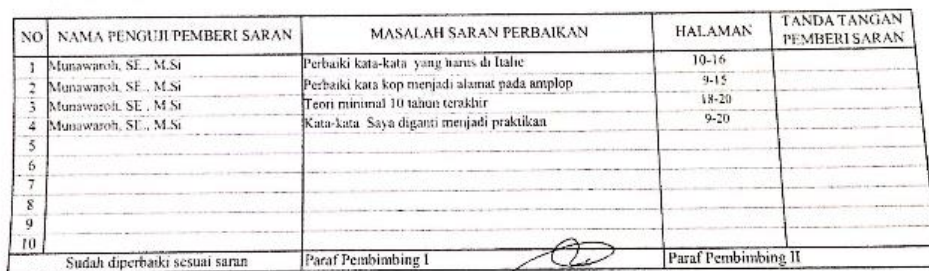 NO NAMA PENGUJI PEMBERI SARAN MASALAH SARAN PERBAIKAN HALAMAN TANDA TANGAN PEMBERI SARAN
1 Munawaroh, SE., M.Si Perbaiki kata-kata yang harus di Italic 10-16
2 Munawaroh, SE., M.Si Perbaiki kata kop menjadi alamat pada amplop 9-15
3 Munawaroh, SE., M.Si Teori minimal 10 tahun terakhir 18-20
4 Munawaroh, SE., M.Si Kata-kata Saya diganti menjadi praktikan 9-20
5
6
7
8
9
10
Sudah diperbaiki sesuai saran Paraf Pembimbing I Paraf Pembimbing II